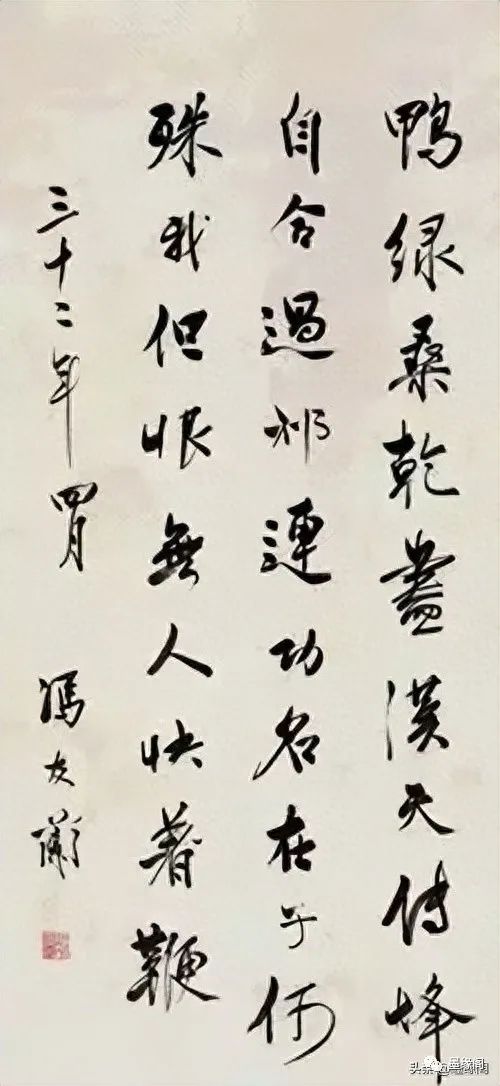 鴨緑桑乾盡漢天傳烽
自合過祁連功名在子何
殊我但恨無人快著鞭
三十二年四月 馮友蘭